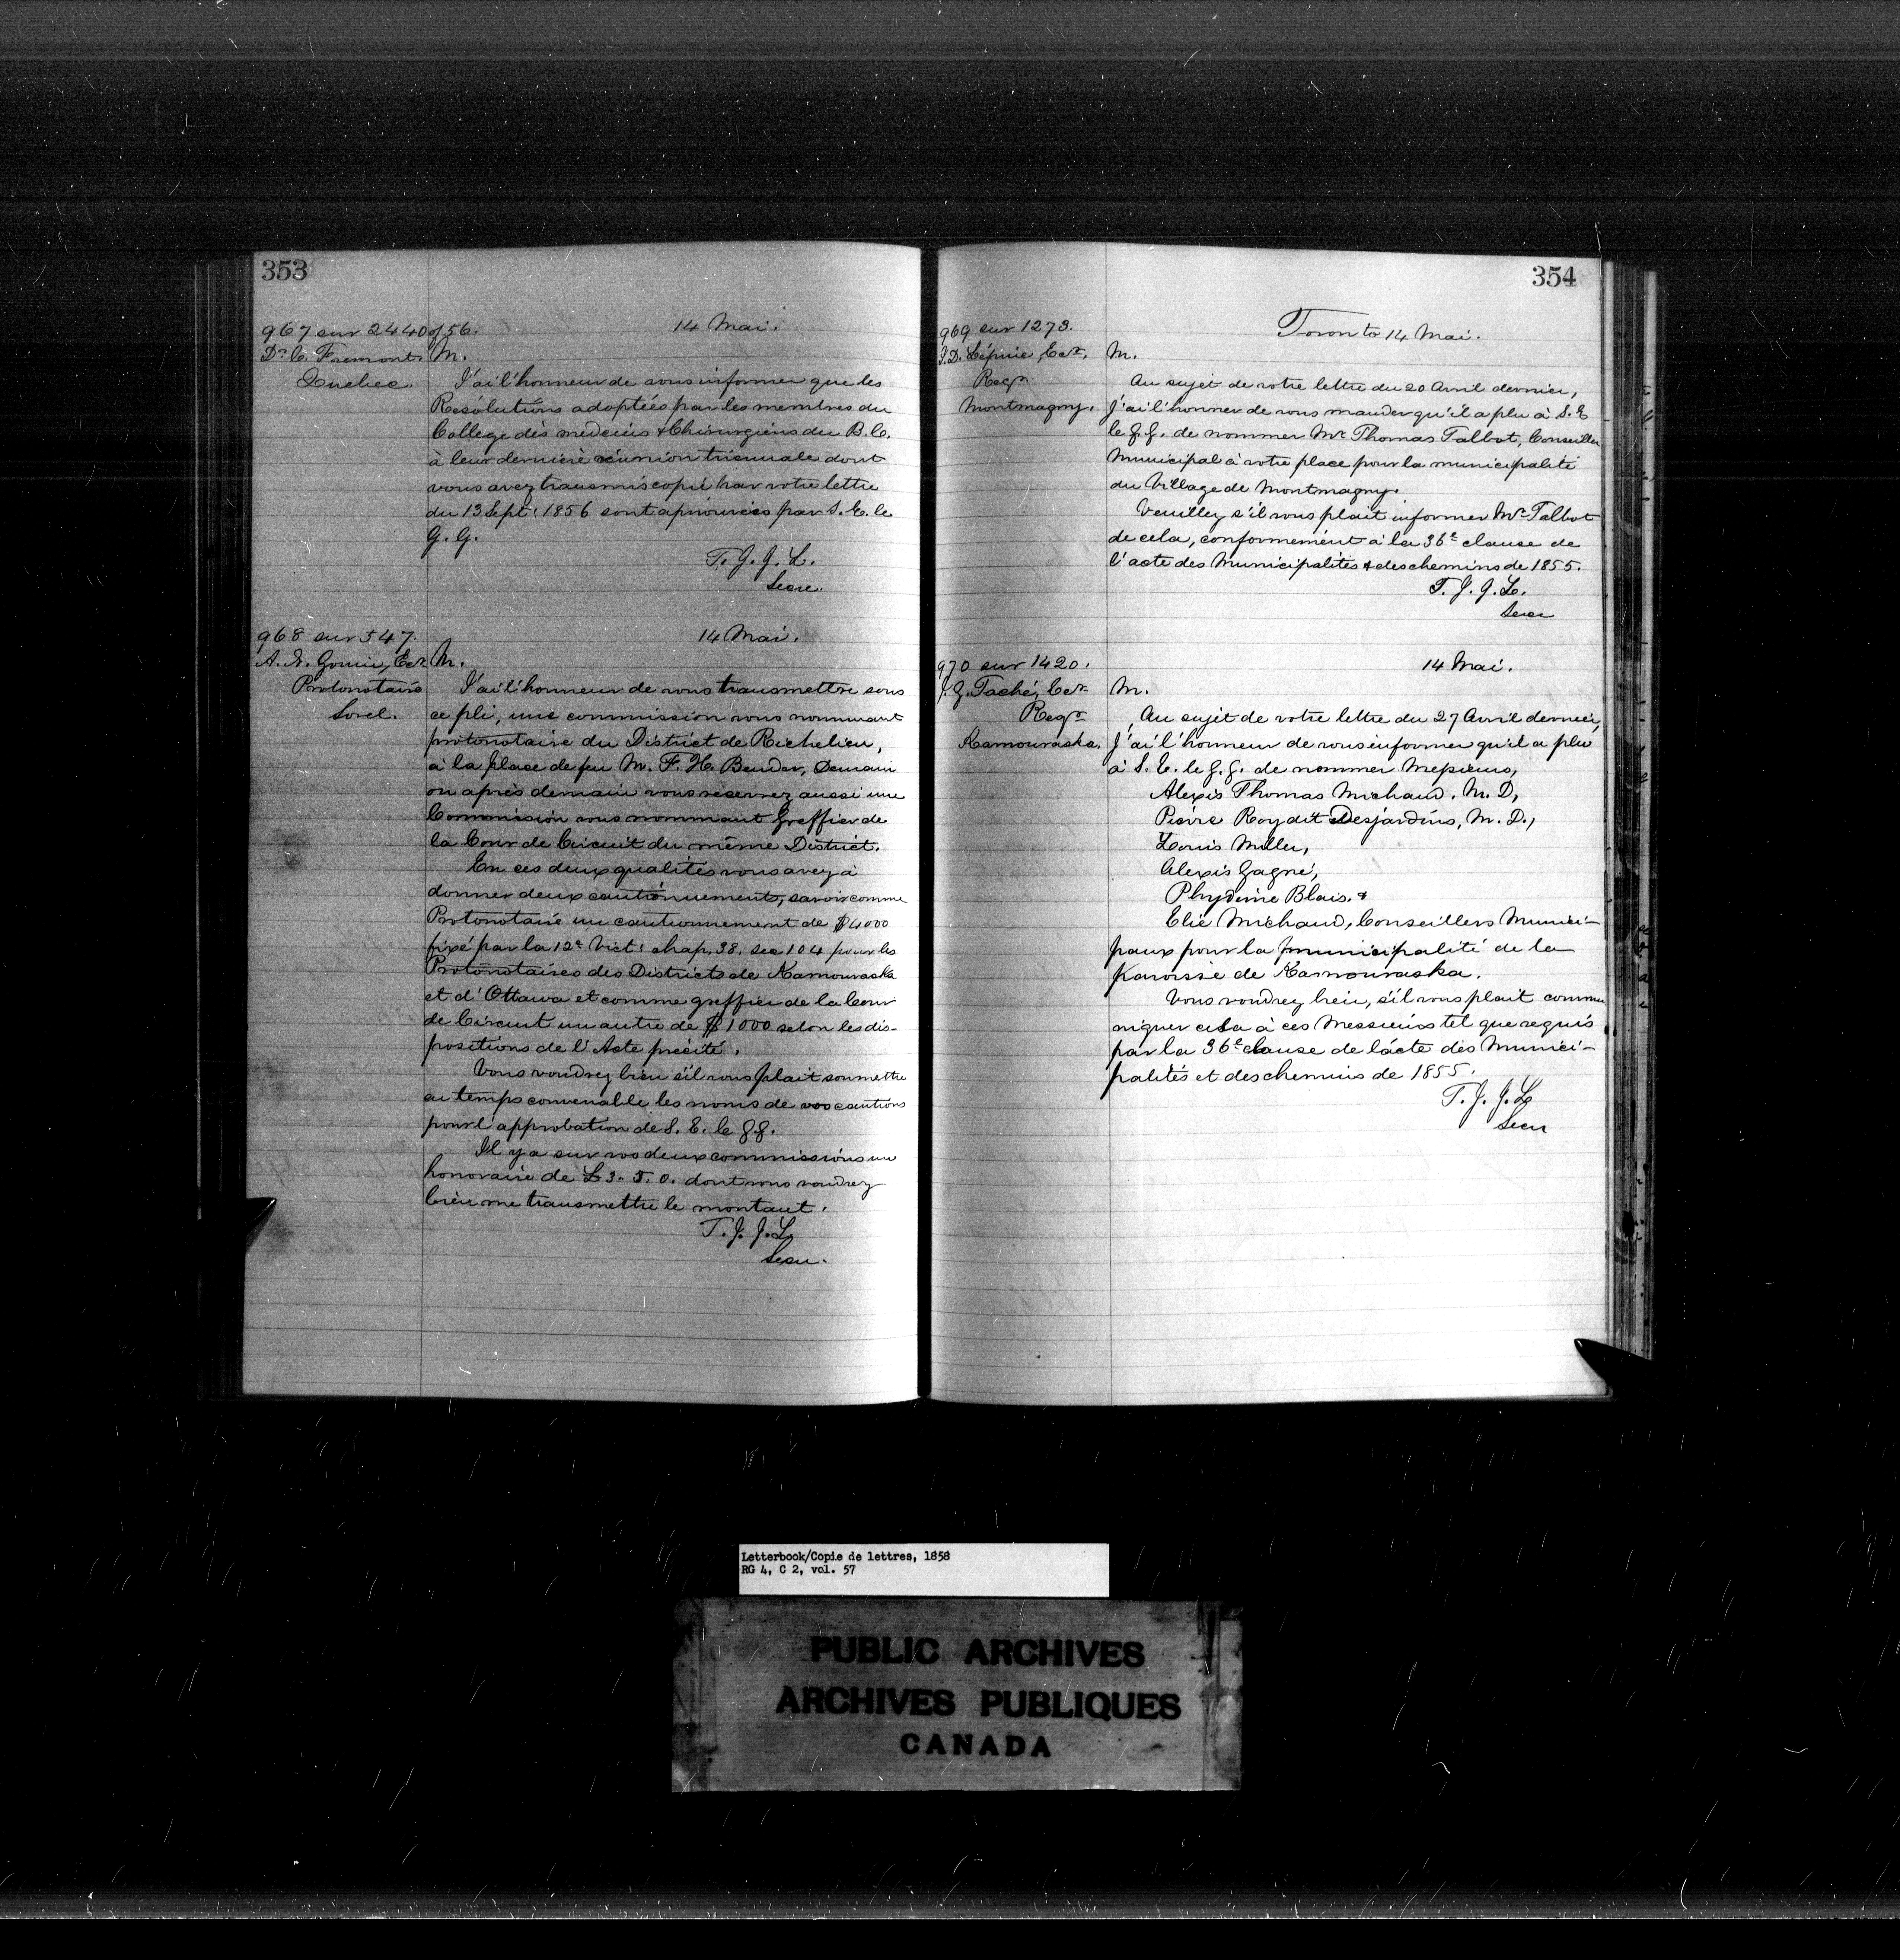 353
967 sur 2440 of 56.
14 Mai.
Dr. C. Fremont
Quebec.
M.
J'ai l'honneur de vous informer que les
Resolutions adoptées par les membres du
College des medecins & Chirurgiens du B.C.
à leur derniere réunion triennale dont
vous avez transmis copie par votre lettre
du 13 Sept. 1856 sont aprouvées par S. E. le
G. G.
T. J. J. L.
Secre.
968 sur 547.
14 Mai.
A. N. Gouin, Ecr
Protonotaire
Sorel.
M.
J'ai l'honneur de vous transmettre sous
ce pli, une commission vous nommant
protonotaire du District de Richelieu,
à la place de feu M. F. H. Bender, Demain
ou après demain vous recevrez aussi une
Commission vous nommant Greffier de
la Cour de Circuit du même District.
En ces deux qualités vous avez à
donner deux cautionnements, savoir comme
Protonotaire un cautionnement de $4000
fixé par la 12e Vict: chap. 38. sec 104 pour les
Protonotaires des Districts de Kamouraska
et d'Ottawa et comme greffier de la Cour
de Circuit un autre de $1000 selon les dis-
positions de l'Acte precité.
Vous voudrez bien s'il vous plait soumettre
au temps convenable les noms de vos cautions
pour l'approbation de S. E. le G.G.
Il y a sur vos deux commissions un
honoraire de £3. 5. 0. dont vous voudrez
bien me transmettre le montant.
T. J. J. L.
Secre.
354
969 sur 1273.
Toronto 14 Mai.
J.D. Lépine, Ecr.
Regr.
Montmagny.
M.
Au sujet de votre lettre du 20 Avril dernier,
J'ai l'honneur de vous mander qu'il a plu à S. E
le G. G. de nommer Mr. Thomas Talbot, Conseiller
Municipal à votre place pour la municipalité
du Village de Montmagny.
Veuillez s'il vous plait informer Mr Talbot
de cela, conformément à la 36e clause de
l'acte des Municipalités & des chemins de 1855.
T. J. J. L.
Secre
970 sur 1420.
14 Mai.
J. G. Taché, Ecr.
Regr
Kamouraska.
M.
Au sujet de votre lettre du 27 Avril dernier,
J'ai l'honneur de vous informer qu'il a plu
à S. E. le G. G. de nommer Messieurs,
Alexis Thomas Michaud, M. D,
Pierre Roy dit Desjardins, M. D.,
Louis Miller,
Alexis Gagné,
Phydime Blais, &
Elie Michaud, Conseillers Munici-
paux pour la municipalité de la
Paroisse de Kamouraska.
Vous voudrez bien, s'il vous plait commu
niquer cela à ces Messieurs tel que requis
par la 36e clause de l'acte des Munici-
palités et des chemins de 1855.
T. J. J. L
Secre
Letterbook/Copie de lettres, 1858
RG 4, C 2, vol. 57
PUBLIC ARCHIVES
ARCHIVES PUBLIQUES
CANADA